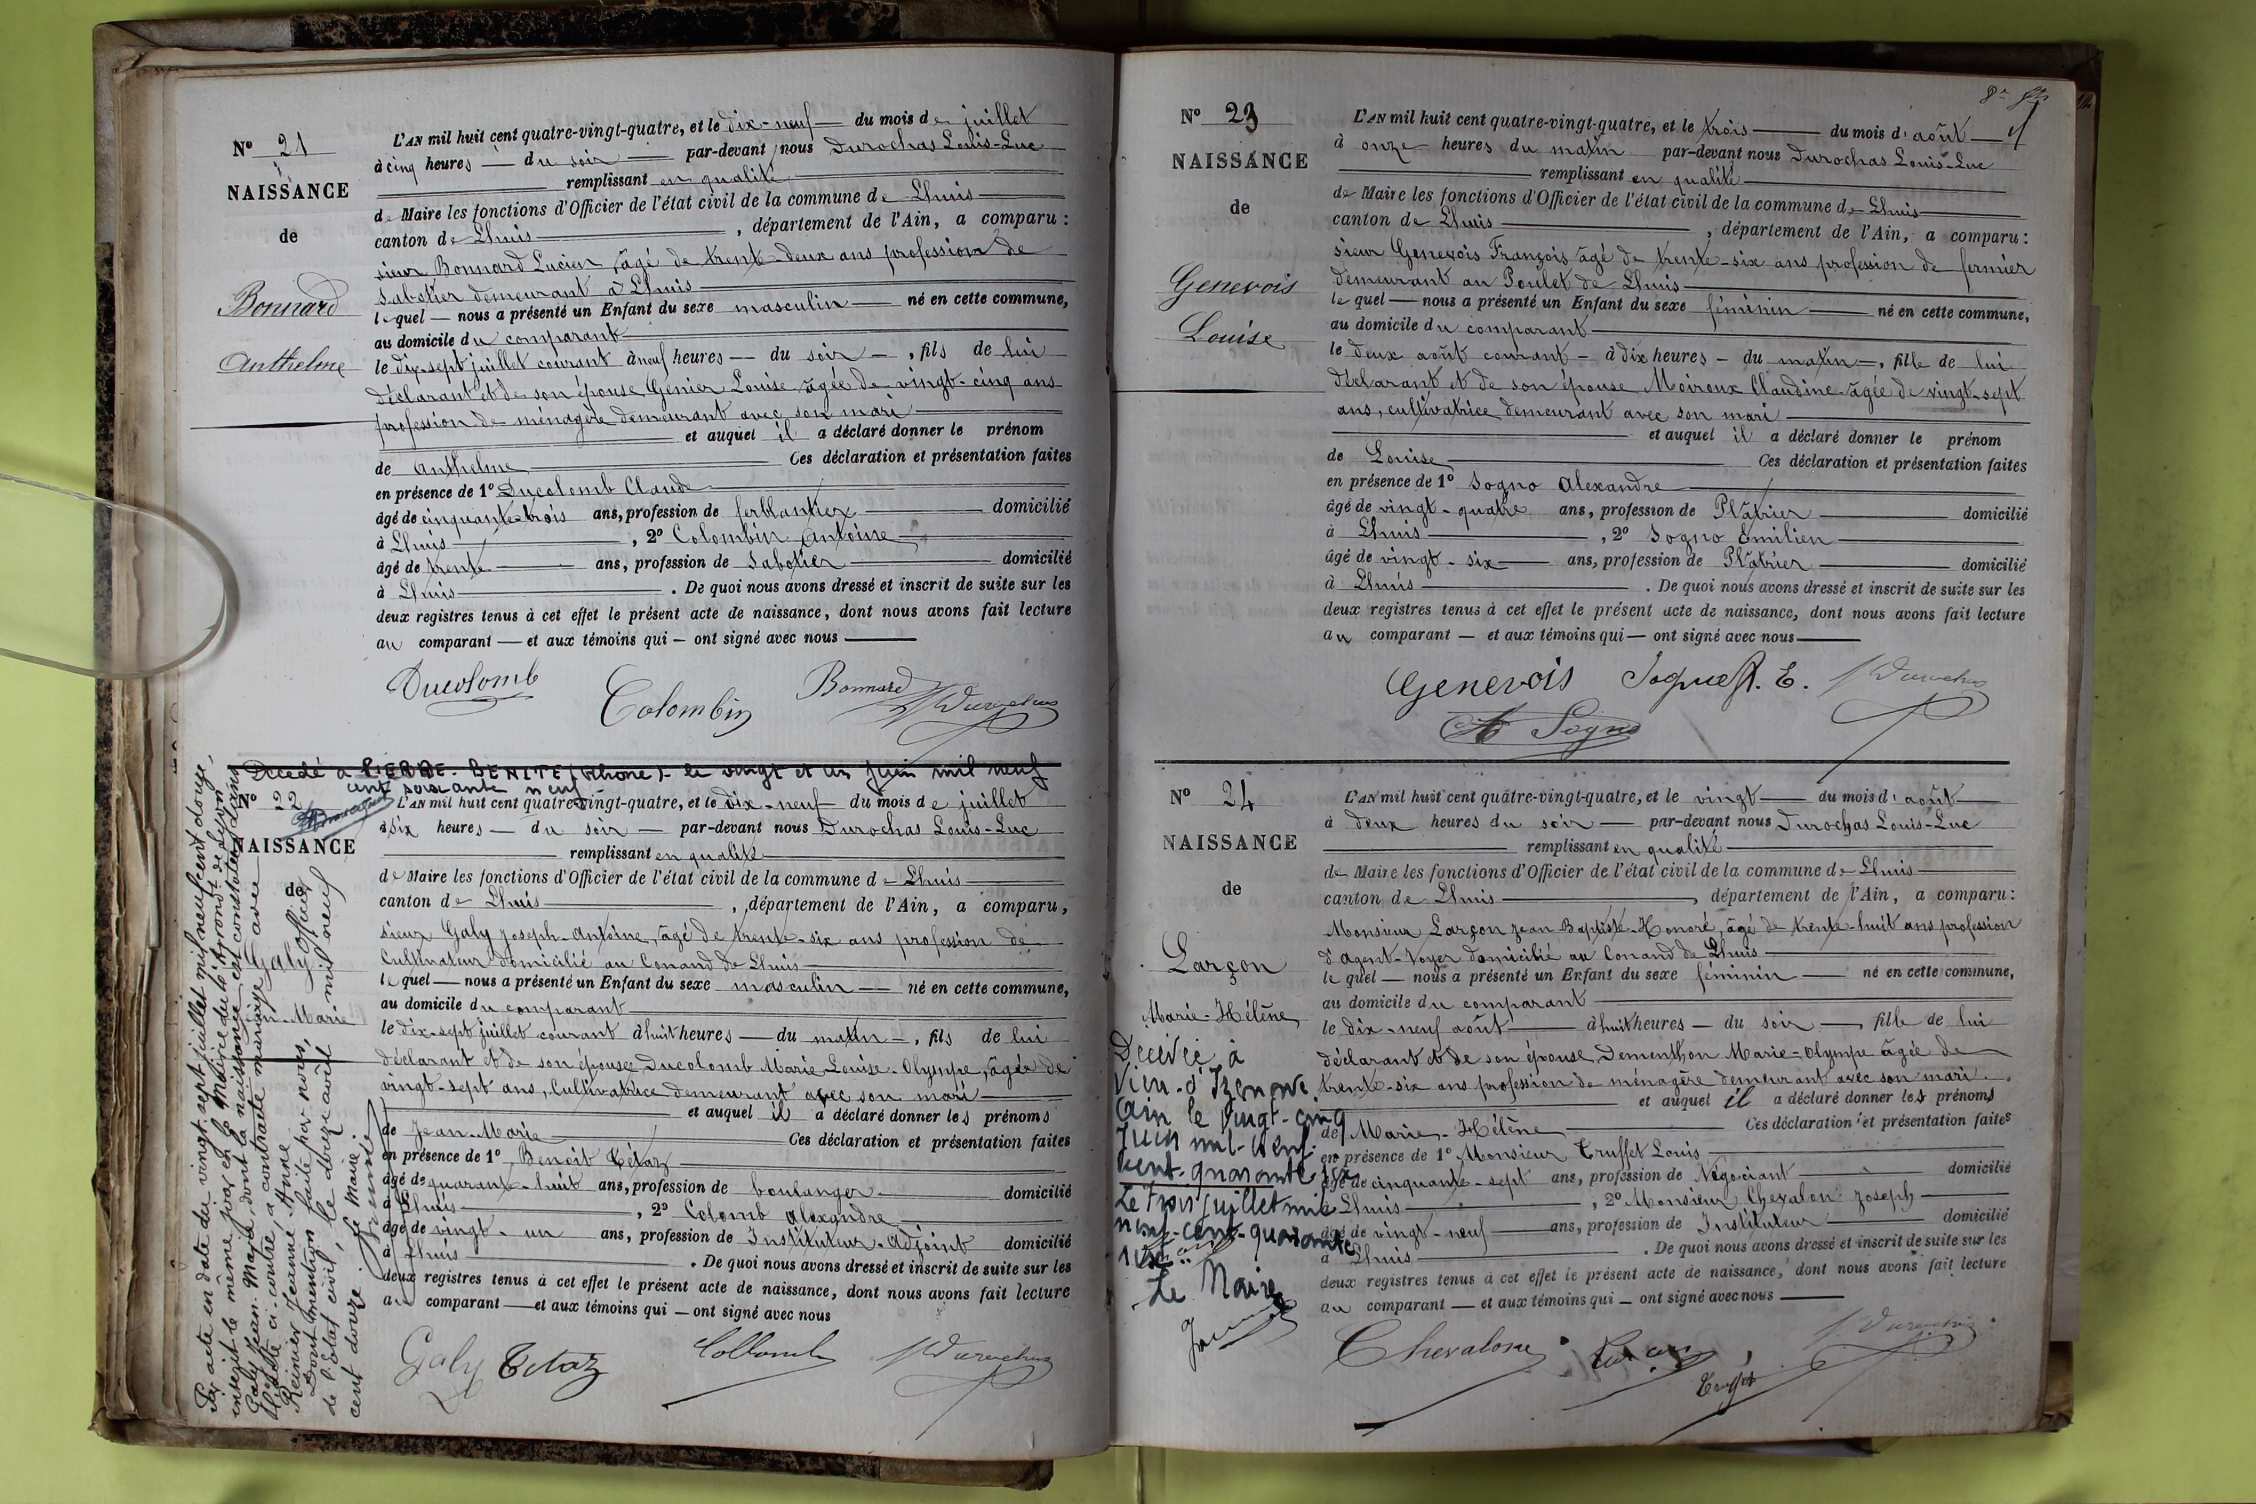 N° 21
NAISSANCE
de
Bonnard
Anthelme
L'AN mil huit cent quatre-vingt-quatre, et le dix-neuf du mois de juillet
à cinq heures du soir par-devant nous Durochas Louis-Luc
remplissant en qualité
de Maire les fonctions d'Officier de l'état civil de la commune de Lhuis
canton de Lhuis, département de l'Ain, a comparu :
sieur Bonnard Lucien, âgé de trente-deux ans profession de
sabotier demeurant à Lhuis
lequel nous a présenté un Enfant du sexe masculin né en cette commune,
au domicile du comparant
le dix-sept juillet courant à neuf heures du soir, fils de lui
déclarant et de son épouse Génier Louise âgée de vingt-cinq ans
profession de ménagère demeurant avec son mari
et auquel il a déclaré donner le prénom
de Anthelme Ces déclaration et présentation faites
en présence de 1° Ducolomb Claude
âgé de cinquante-trois ans, profession de ferblantier domicilié
à Lhuis, 2° Colombin Antoine
âgé de trente ans, profession de sabotier domicilié
à Lhuis. De quoi nous avons dressé et inscrit de suite sur les
deux registres tenus à cet effet le présent acte de naissance, dont nous avons fait lecture
au comparant et aux témoins qui ont signé avec nous
Ducolomb Colombin Bonnard Durochas
Decédé à PIERRE-BENITE (Rhone) le vingt et un juin mil neuf
cent soixante neuf
N° 22
NAISSANCE
de
Galy
Jean-Marie
L'AN mil huit cent quatre-vingt-quatre, et le dix-neuf du mois de juillet
à six heures du soir par-devant nous Durochas Louis-Luc
remplissant en qualité
de Maire les fonctions d'Officier de l'état civil de la commune de Lhuis
canton de Lhuis, département de l'Ain, a comparu,
sieur Galy Joseph-Antoine, âgé de trente-six ans profession de
cultivateur domicilié au Conand de Lhuis
lequel nous a présenté un Enfant du sexe masculin né en cette commune,
au domicile du comparant
le dix-sept juillet courant à huit heures du matin, fils de lui
déclarant et de son épouse Ducolomb Marie-Louise-Olympe, âgée de
vingt-sept ans, cultivatrice demeurant avec son mari
et auquel il a déclaré donner les prénoms
de Jean-Marie Ces déclaration et présentation faites
en présence de 1° Benoit Tétaz
âgé de quarante-huit ans, profession de boulanger domicilié
à Lhuis, 2° Colomb Alexandre
âgé de vingt-un ans, profession de Instituteur-Adjoint domicilié
à Lhuis. De quoi nous avons dressé et inscrit de suite sur les
deux registres tenus à cet effet le présent acte de naissance, dont nous avons fait lecture
au comparant et aux témoins qui ont signé avec nous
Galy Tétaz Collomb Durochas
Par acte en date du vingt-sept juillet mil neuf cent douze,
inscrit le même jour en la Mairie du 4e Arrondt de Lyon
Galy Jean-Marie, dont la naissance est constatée dans
l'acte ci-contre, a contracté mariage avec
Reinier Jeanne-Anne
Dont mention faite par nous, Officier
de l'Etat civil, le douze août mil neuf
cent douze. Le Maire
N° 23
NAISSANCE
de
Genevois
Louise
L'AN mil huit cent quatre-vingt-quatre, et le trois du mois d'août
à onze heures du matin par-devant nous Durochas Louis-Luc
remplissant en qualité
de Maire les fonctions d'Officier de l'état civil de la commune de Lhuis
canton de Lhuis, département de l'Ain, a comparu :
sieur Genevois François âgé de trente-six ans profession de fermier
demeurant au Poulet de Lhuis
lequel nous a présenté un Enfant du sexe féminin né en cette commune,
au domicile du comparant
le deux août courant à dix heures du matin, fille de lui
déclarant et de son épouse Moiroux Claudine âgée de vingt-sept
ans, cultivatrice demeurant avec son mari
et auquel il a déclaré donner le prénom
de Louise Ces déclaration et présentation faites
en présence de 1° Sogno Alexandre
âgé de vingt-quatre ans, profession de Plâtrier domicilié
à Lhuis, 2° Sogno Emilien
âgé de vingt-six ans, profession de Plâtrier domicilié
à Lhuis. De quoi nous avons dressé et inscrit de suite sur les
deux registres tenus à cet effet le présent acte de naissance, dont nous avons fait lecture
au comparant et aux témoins qui ont signé avec nous
Genevois E. Durochas
Sogno
N° 24
NAISSANCE
de
Larçon
Marie-Hélène
L'AN mil huit cent quatre-vingt-quatre, et le vingt du mois d'août
à deux heures du soir par-devant nous Durochas Louis-Luc
remplissant en qualité
de Maire les fonctions d'Officier de l'état civil de la commune de Lhuis
canton de Lhuis, département de l'Ain, a comparu :
Monsieur Larçon Jean Baptiste-Honoré, âgé de trente-huit ans profession
d'agent-voyer domicilié au Conand de Lhuis
lequel nous a présenté un Enfant du sexe féminin né en cette commune,
au domicile du comparant
le dix-neuf août à huit heures du soir, fille de lui
déclarant et de son épouse Dementhon Marie-Olympe âgée de
trente-six ans profession de ménagère demeurant avec son mari.
et auquel il a déclaré donner les prénoms
de Marie-Hélène Ces déclaration et présentation faites
en présence de 1° Monsieur Truffet Louis
âgé de cinquante-sept ans, profession de Négociant domicilié
à Lhuis, 2° Monsieur Chevalon Joseph
âgé de vingt-neuf ans, profession de Instituteur domicilié
à Lhuis. De quoi nous avons dressé et inscrit de suite sur les
deux registres tenus à cet effet le présent acte de naissance, dont nous avons fait lecture
au comparant et aux témoins qui ont signé avec nous
Chevalon Larçon Truffet Durochas
Décédée à
Vieu-d'Izenave
Ain le vingt-cinq
Juin mil-neuf-
cent-quarante six
Le trois juillet mil
neuf-cent-quarante
six
Le Maire